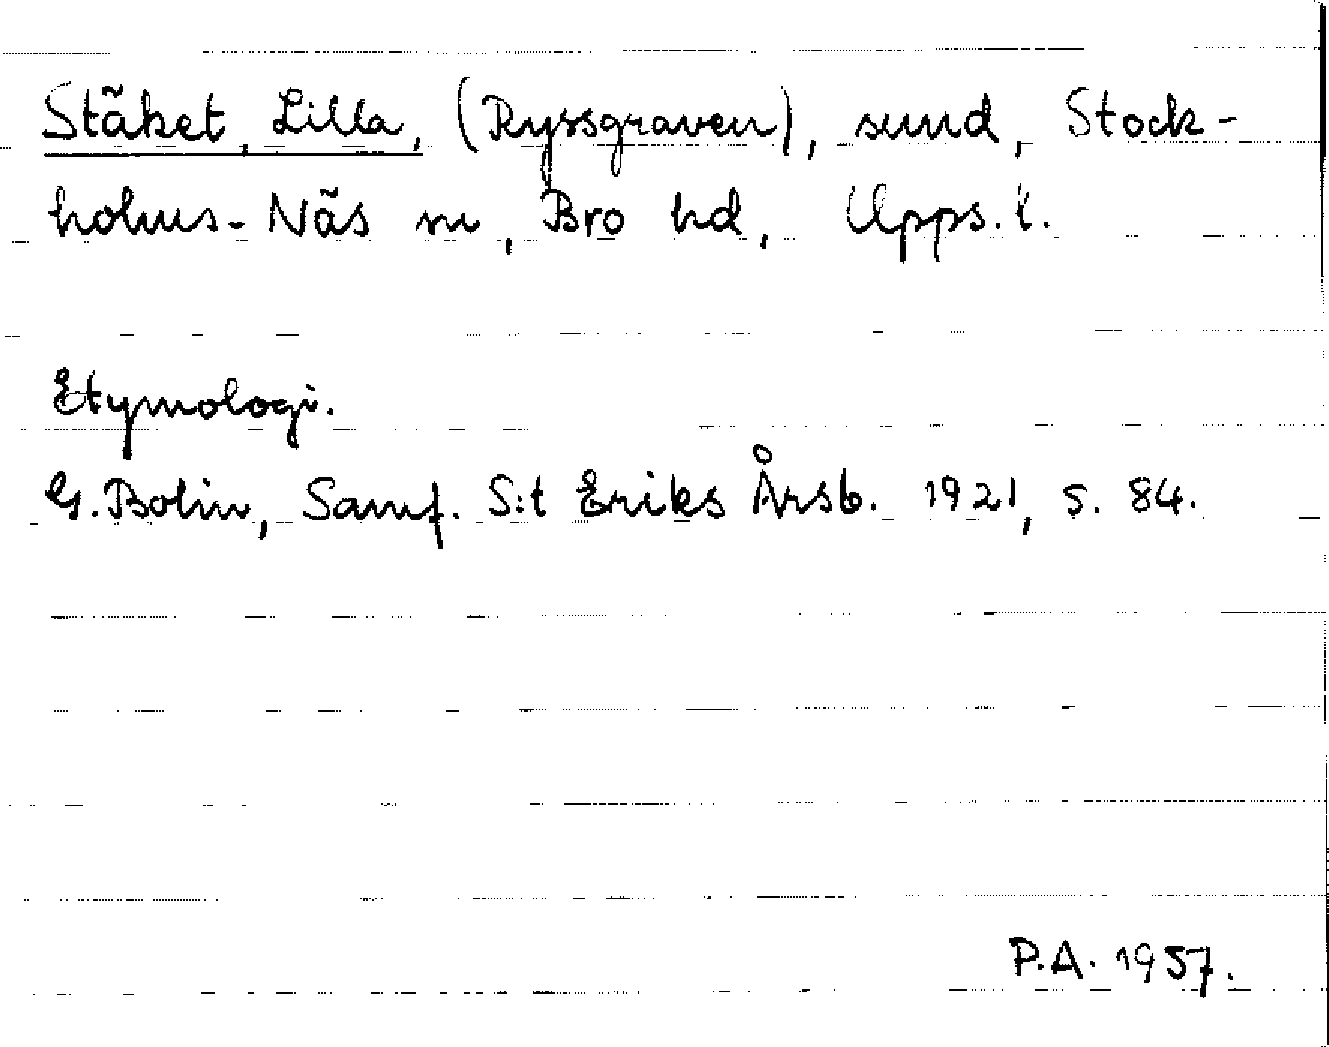 Stäket, Lilla, (Ryssgraven), sund, Stock-
holms-Näs sn, Bro hd, Upps. l.
Etymologi.
G. Bolin, Samf. S:t Eriks Årsb. 1921, s. 84.
P.A. 1957.